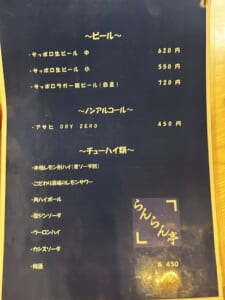 ～ビール～
・サッポロ生ビール 中 620円
・サッポロ生ビール 小 550円
・サッポロラガー瓶ビール(赤星) 720円
～ノンアルコール～
・アサヒ DRY ZERO 450円
～チューハイ類～
・本格レモン割ハイ(壱ソーダ割)
・こだわり酒場のレモンサワー
・角ハイボール
・翠ジンソーダ
・ウーロンハイ
・カシスソーダ
・梅酒
らんらん亭
各 450